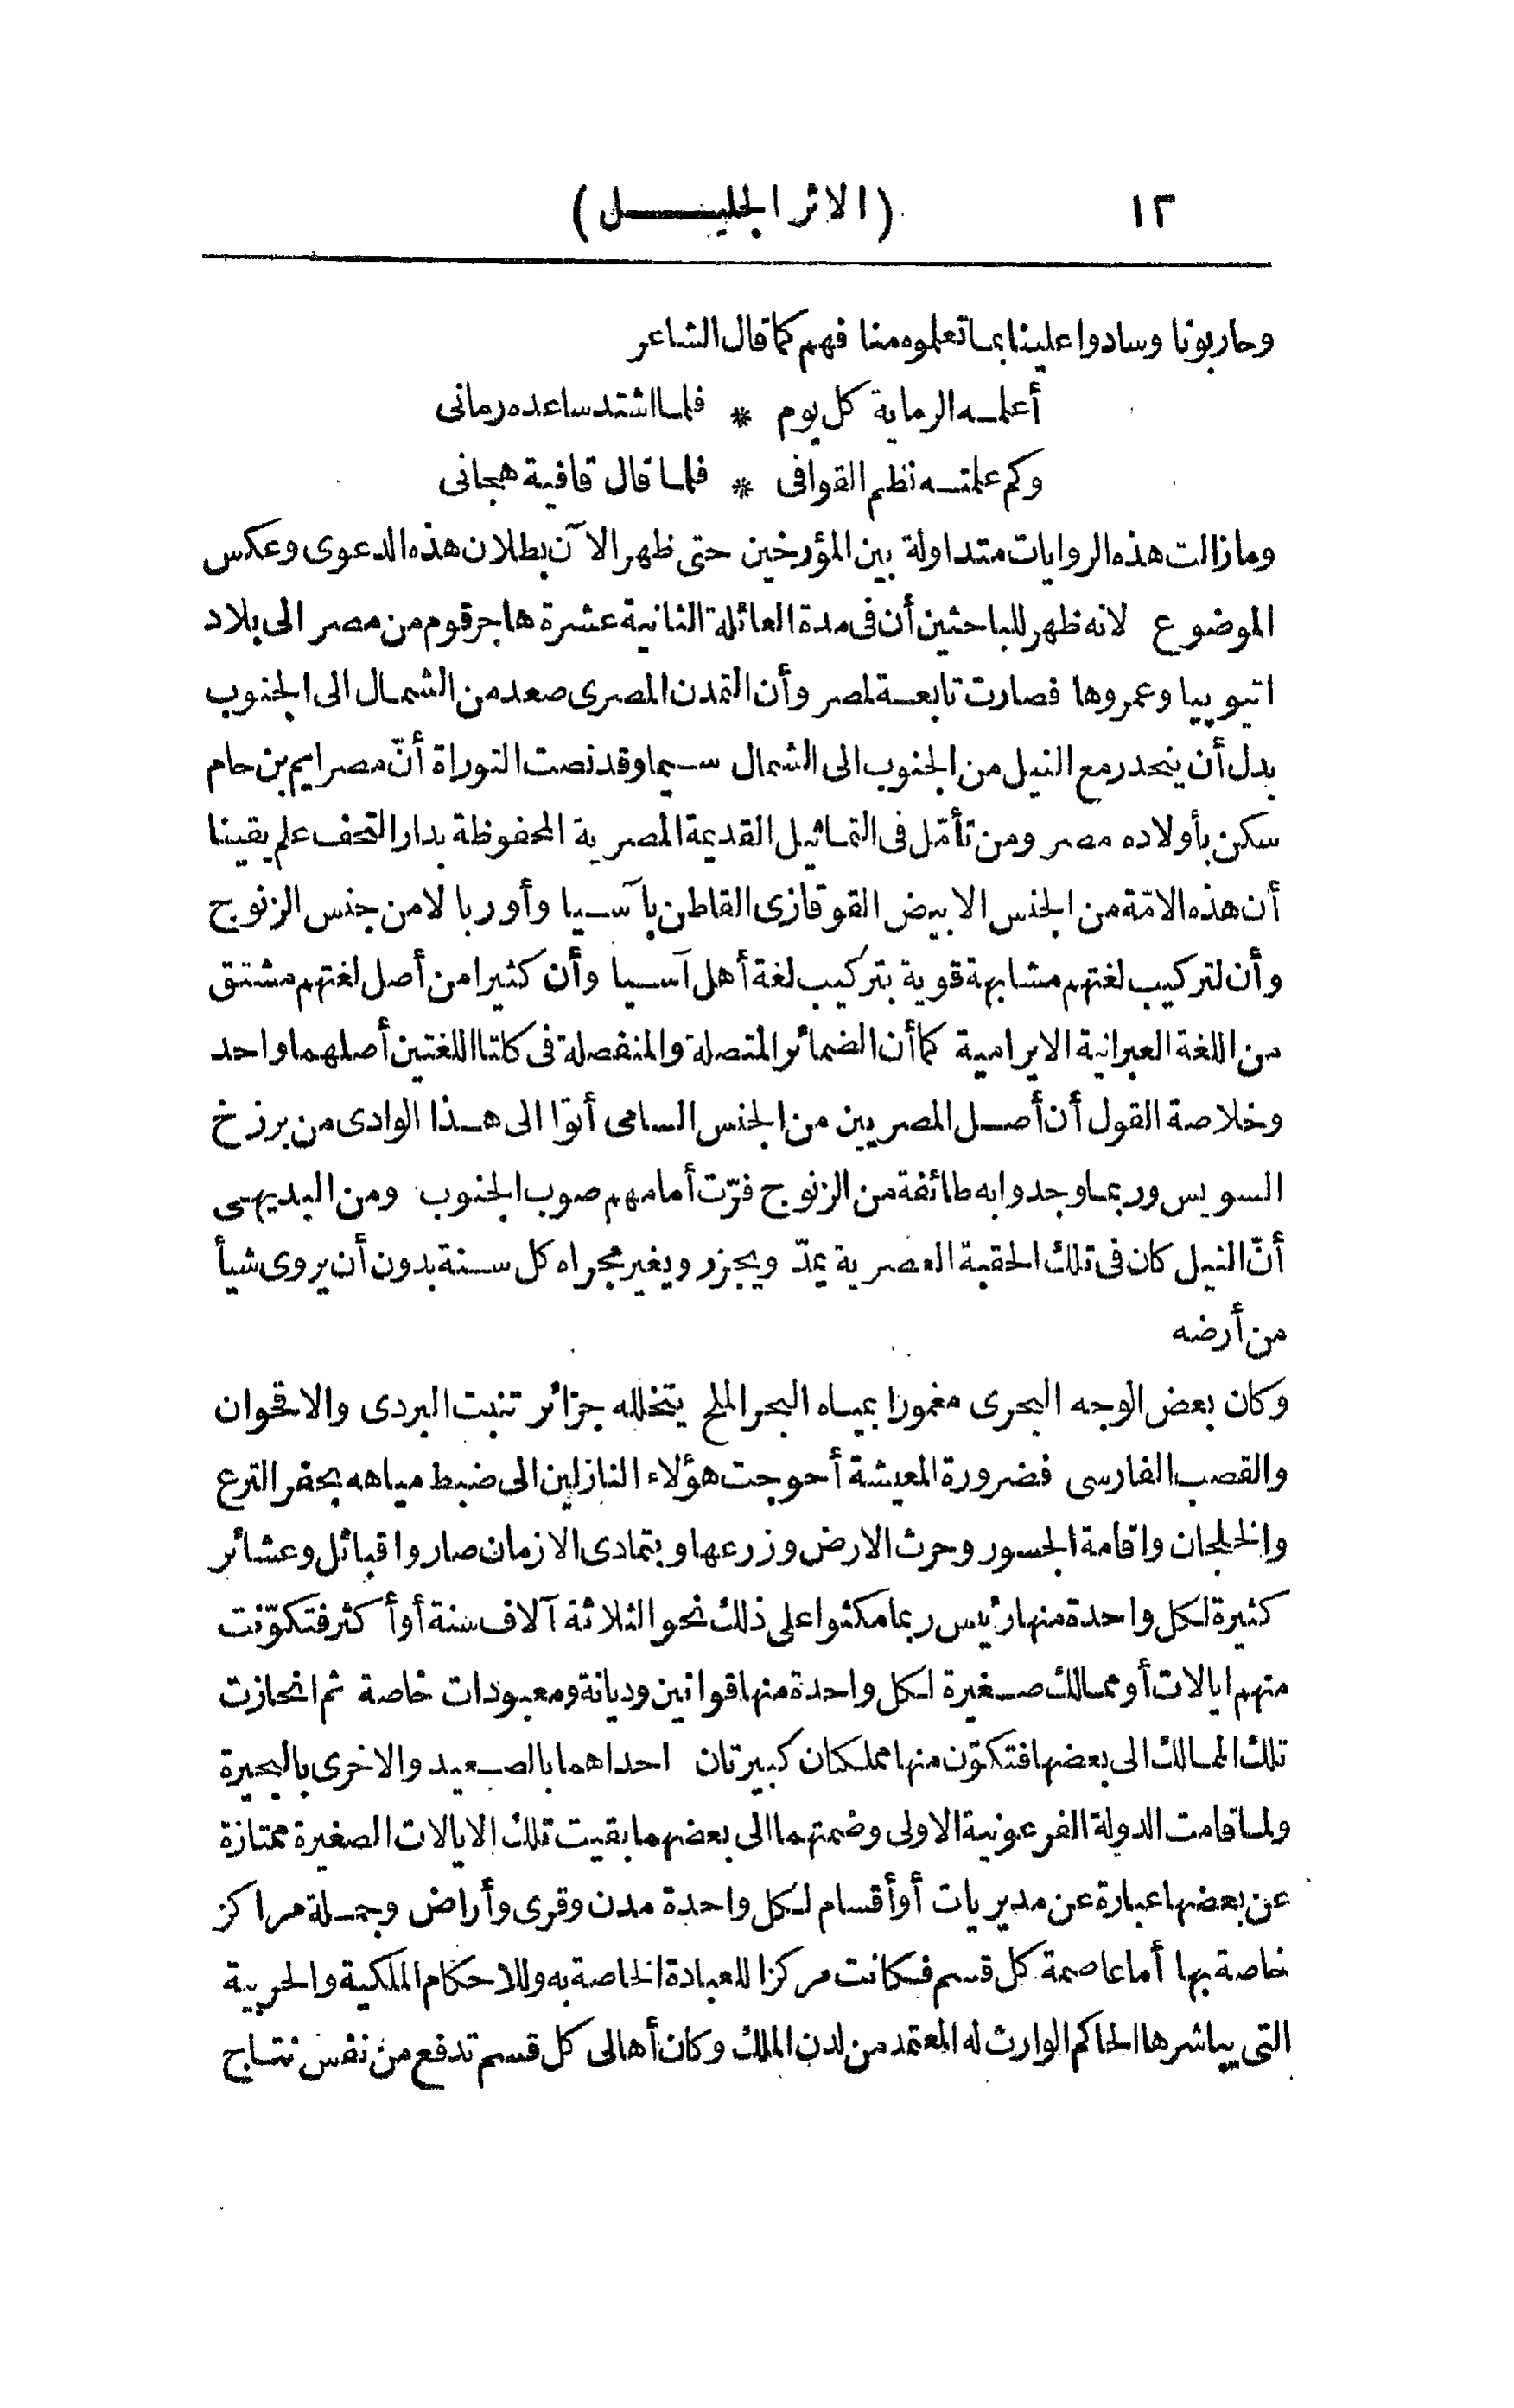 ١٢ (الاثر الجليل)
وحاربونا وسادوا علينا بما تعلموه منا فهم كما قال الشاعر
أعلمه الرماية كل يوم * فلما اشتد ساعده رمانى
وكم علمته نظم القوافى * فلما قال قافية هجانى
ومازالت هذه الروايات متداولة بين المؤرخين حتى ظهر الآن بطلان هذه الدعوى وعكس
الموضوع لانه ظهر للباحثين أن فى مدة العائلة الثانية عشرة هاجر قوم من مصر الى بلاد
اتيوبيا وعمروها فصارت تابعة لمصر وأن التمدن المصرى صعد من الشمال الى الجنوب
بدل أن ينحدر مع النيل من الجنوب الى الشمال سيما وقد نصت التوراة أنّ مصرايم بن حام
سكن بأولاده مصر ومن تأمّل فى التماثيل القديمة المصرية المحفوظة بدار التحف علم يقينا
أن هذه الامّة من الجنس الابيض القوقازى القاطن بآسيا وأوربا لا من جنس الزنوج
وأن لتركيب لغتهم مشابهة قوية بتركيب لغة أهل آسيا وأن كثيرا من أصل لغتهم مشتق
من اللغة العبرانية الايرامية كما أن الضمائر المتصلة والمنفصلة فى كلتا اللغتين أصلهما واحد
وخلاصة القول أن أصل المصريين من الجنس السامى أتوا الى هذا الوادى من برزخ
السويس وربما وجدوا به طائفة من الزنوج فرّت أمامهم صوب الجنوب ومن البديهى
أنّ النيل كان فى تلك الحقبة العصرية يمدّ ويجزر ويغير مجراه كل سنة بدون أن يروى شيأ
من أرضه
وكان بعض الوجه البحرى مغمورا بمياه البحر الملح يتخلله جزائر تنبت البردى والاقحوان
والقصب الفارسى فضرورة المعيشة أحوجت هؤلاء النازلين الى ضبط مياهه بحفر الترع
والخلجان واقامة الجسور وحرث الارض وزرعها وبتمادى الازمان صاروا قبائل وعشائر
كثيرة لكل واحدة منها رئيس ربما مكثوا على ذلك نحو الثلاثة آلاف سنة أو أكثر فتكوّنت
منهم ايالات أو ممالك صغيرة لكل واحدة منها قوانين وديانة ومعبودات خاصة ثم انحازت
تلك الممالك الى بعضها فتكوّن منها مملكتان كبيرتان احداهما بالصعيد والاخرى بالبحيرة
ولما قامت الدولة الفرعونية الاولى وضمتهما الى بعضهما بقيت تلك الايالات الصغيرة ممتازة
عن بعضها عبارة عن مديريات أو أقسام لكل واحدة مدن وقرى وأراض وجملة مراكز
خاصة بها أما عاصمة كل قسم فكانت مركزا للعبادة الخاصة به وللاحكام الملكية والحربية
التى يباشرها الحاكم الوارث له المعتمد من لدن الملك وكان أهالى كل قسم تدفع من نفس نتاج